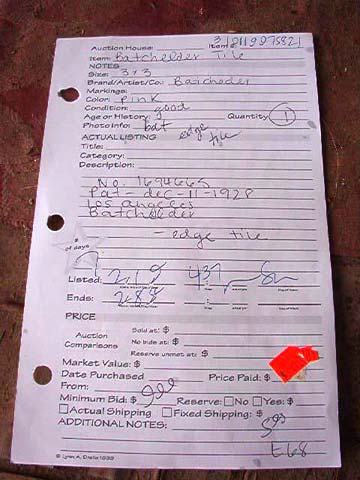 Auction House: Item #:
Item: Batchelder Tile
NOTES
Size: 3x3
Brand/Artist/Co: Batchelder
Markings:
Color: pink
Condition: good
Age or History: Quantity 1
Photo Info: bat edge tile
ACTUAL LISTING
Title:
Category:
Description:
No. 1694665
Pat - dec - 11 - 1928
Los Angeles
Batchelder
- edge tile
# of days
7
Listed: 437
Ends:
PRICE
Auction Comparisons
Sold at: $
No bids at: $
Reserve unmet at: $
Market Value: $
Date Purchased Price Paid: $
From:
Minimum Bid: $ 9.99 Reserve: No Yes: $
Actual Shipping Fixed Shipping: $
ADDITIONAL NOTES:
© Lynn A. Dralle 1999